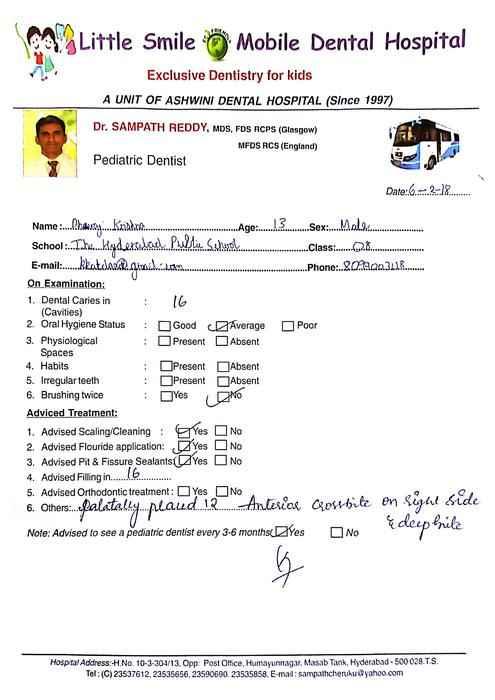 Little Smile Mobile Dental Hospital
Exclusive Dentistry for kids
A UNIT OF ASHWINI DENTAL HOSPITAL (Since 1997)
Dr. SAMPATH REDDY, MDS, FDS RCPS (Glasgow)
MFDS RCS (England)
Pediatric Dentist
Date: 6-2-18
Name: Krishna Age: 13 Sex: Male
School: The Hyderabad Public School Class: 08
E-mail: @gmail.com Phone:
On Examination:
1. Dental Caries in : 16
(Cavities)
2. Oral Hygiene Status : Good Average Poor
3. Physiological : Present Absent
Spaces
4. Habits : Present Absent
5. Irregular teeth : Present Absent
6. Brushing twice : Yes No
Adviced Treatment:
1. Advised Scaling/Cleaning : Yes No
2. Advised Flouride application: Yes No
3. Advised Pit & Fissure Sealants: Yes No
4. Advised Filling in 16
5. Advised Orthodontic treatment : Yes No
6. Others: Palatally placed 12 - Anterior crossbite on right side
& deepbite
Note: Advised to see a pediatric dentist every 3-6 months Yes No
Hospital Address:-H.No. 10-3-304/13, Opp: Post Office, Humayunnagar, Masab Tank, Hyderabad - 500 028.T.S.
Tel : (C) 23537612, 23535656, 23590690. 23535858, E-mail : sampathcheruku@yahoo.com